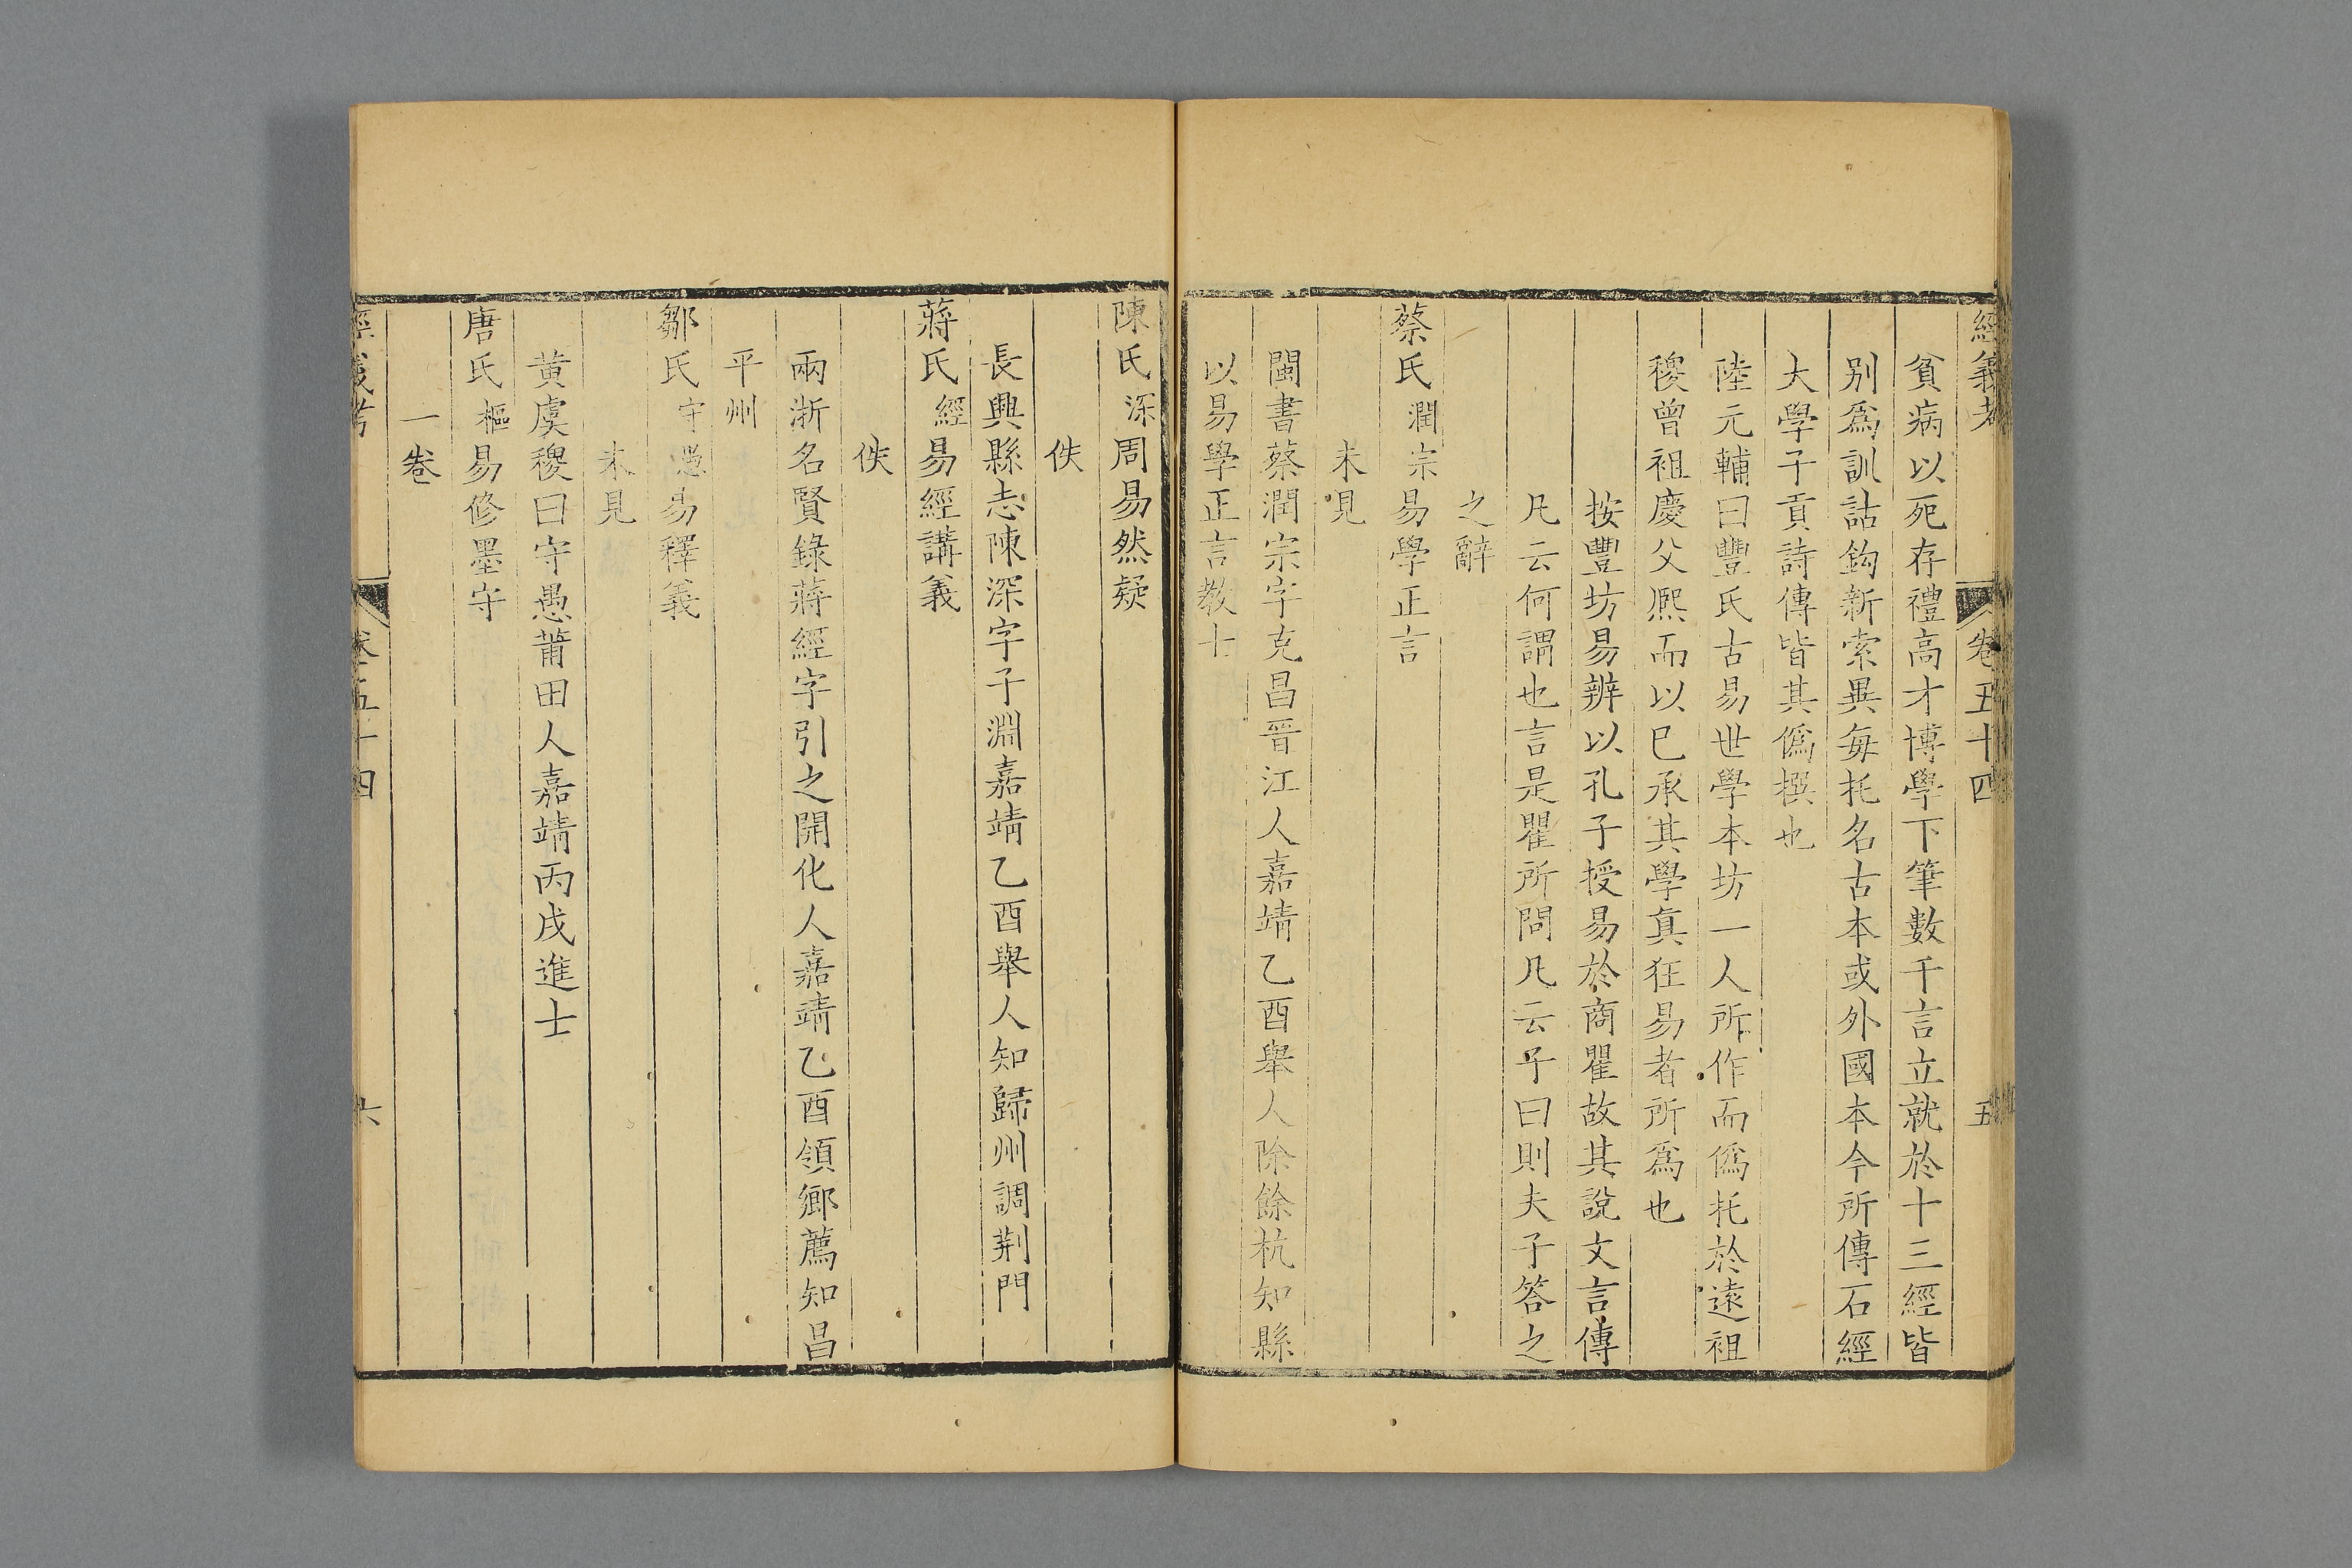 經義考 卷五十四 五
貧病以死存禮高才博學下筆數千言立就於十三經皆
别爲訓詁鈎新索異每托名古本或外國本今所傳石經
大學子貢詩傳皆其僞撰也
陸元輔曰豐氏古易世學本坊一人所作而僞托於遠祖
稷曾祖慶父熈而以已承其學真狂易者所爲也
按豐坊易辨以孔子授易於商瞿故其說文言傳
凡云何謂也言是瞿所問凡云子曰則夫子答之
之辭
蔡氏潤宗易學正言
未見
閩書蔡潤宗字克昌晉江人嘉靖乙酉舉人除餘杭知縣
以易學正言教士
陳氏深周易然疑
佚
長興縣志陳深字子淵嘉靖乙酉舉人知歸州調荆門
蔣氏經易經講義
佚
兩浙名賢錄蔣經字引之開化人嘉靖乙酉領鄉薦知昌
平州
鄒氏守愚易釋義
未見
黄虞稷曰守愚莆田人嘉靖丙戌進士
唐氏樞易修墨守
一卷
經義考 卷五十四 六